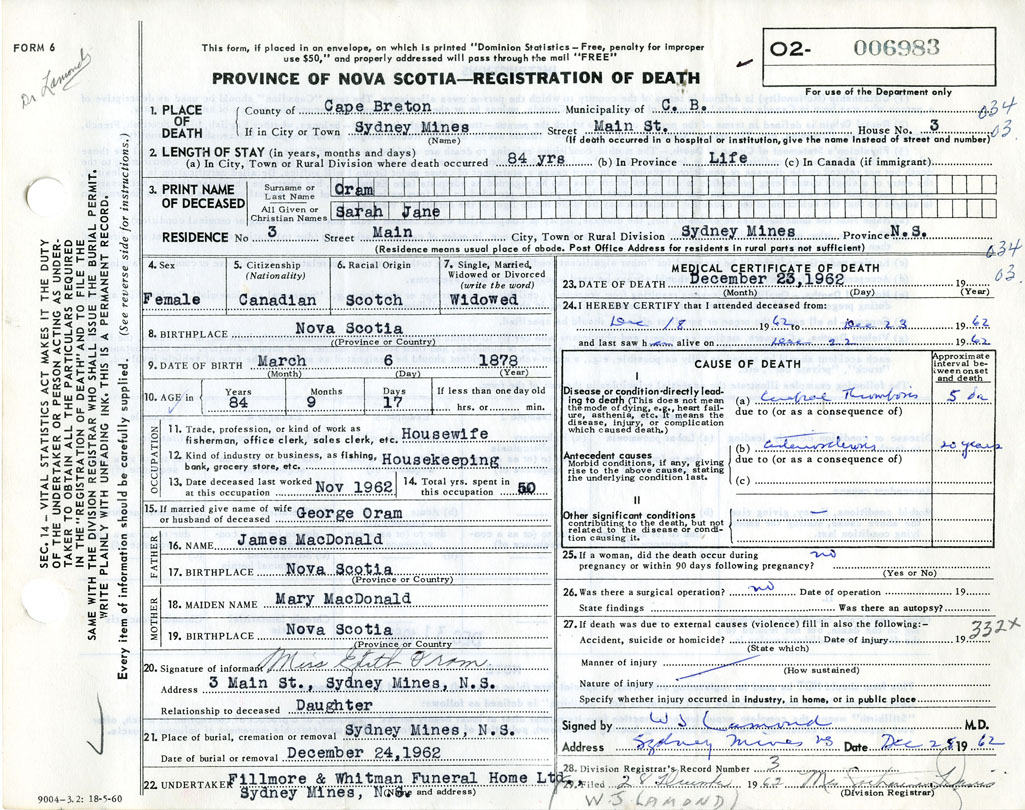 FORM 6
Dr Lamond
This form, if placed in an envelope, on which is printed "Dominion Statistics—Free, penalty for improper
use $50," and properly addressed will pass through the mail "FREE"
PROVINCE OF NOVA SCOTIA—REGISTRATION OF DEATH
O2- 006983
For use of the Department only
1. PLACE OF DEATH
County of Cape Breton Municipality of C. B.
If in City or Town Sydney Mines Street Main St. House No. 3
(Name) (If death occurred in a hospital or institution, give the name instead of street and number)
034
03
2. LENGTH OF STAY (in years, months and days)
(a) In City, Town or Rural Division where death occurred 84 yrs (b) In Province Life (c) In Canada (if immigrant)
3. PRINT NAME OF DECEASED
Surname or Last Name Oram
All Given or Christian Names Sarah Jane
RESIDENCE No 3 Street Main City, Town or Rural Division Sydney Mines Province N.S.
(Residence means usual place of abode. Post Office Address for residents in rural parts not sufficient)
034
03
4. Sex Female
5. Citizenship (Nationality) Canadian
6. Racial Origin Scotch
7. Single, Married, Widowed or Divorced (write the word) Widowed
8. BIRTHPLACE Nova Scotia
(Province or Country)
9. DATE OF BIRTH March 6 1878
(Month) (Day) (Year)
10. AGE in Years 84 Months 9 Days 17 If less than one day old hrs. or min.
OCCUPATION
11. Trade, profession, or kind of work as
fisherman, office clerk, sales clerk, etc. Housewife
12. Kind of industry or business, as fishing,
bank, grocery store, etc. Housekeeping
13. Date deceased last worked at this occupation Nov 1962
14. Total yrs. spent in this occupation 50
15. If married give name of wife or husband of deceased George Oram
FATHER
16. NAME James MacDonald
17. BIRTHPLACE Nova Scotia
(Province or Country)
MOTHER
18. MAIDEN NAME Mary MacDonald
19. BIRTHPLACE Nova Scotia
(Province or Country)
20. Signature of informant Miss Edith Oram
Address 3 Main St., Sydney Mines, N.S.
Relationship to deceased Daughter
21. Place of burial, cremation or removal Sydney Mines, N.S.
Date of burial or removal December 24,1962
22. UNDERTAKER Fillmore & Whitman Funeral Home Ltd.
Sydney Mines, N.S. and address)
MEDICAL CERTIFICATE OF DEATH
23. DATE OF DEATH December 23,1962
(Month) (Day) (Year)
24. I HEREBY CERTIFY that I attended deceased from:
Dec 18 1962 to Dec 23 1962
and last saw h alive on Dec 22 1962
CAUSE OF DEATH
Approximate interval between onset and death
I
Disease or condition directly leading
to death (This does not mean
the mode of dying, e.g., heart failure,
asthenia, etc. It means the
disease, injury, or complication
which caused death.)
(a) Cerebral Thrombosis 5 da
due to (or as a consequence of)
Antecedent causes
Morbid conditions, if any, giving
rise to the above cause, stating
the underlying condition last.
(b) arteriosclerosis 20 years
due to (or as a consequence of)
(c)
II
Other significant conditions
contributing to the death, but not
related to the disease or condition
causing it.
25. If a woman, did the death occur during
pregnancy or within 90 days following pregnancy? no
(Yes or No)
26. Was there a surgical operation? no Date of operation 19
State findings Was there an autopsy?
27. If death was due to external causes (violence) fill in also the following:-
332x
Accident, suicide or homicide? Date of injury 19
(State which)
Manner of injury
(How sustained)
Nature of injury
Specify whether injury occurred in industry, in home, or in public place
Signed by W S Lamond M.D.
Address Sydney Mines NS Date Dec 28 1962
28. Division Registrar's Record Number 3
29. Filed 1962
(Division Registrar)
W. S. LAMOND
SEC. 14—VITAL STATISTICS ACT MAKES IT THE DUTY
OF THE UNDERTAKER OR PERSON ACTING AS UNDERTAKER
TO OBTAIN ALL THE PARTICULARS REQUIRED
IN THE "REGISTRATION OF DEATH" AND TO FILE THE
SAME WITH THE DIVISION REGISTRAR WHO SHALL ISSUE THE BURIAL PERMIT.
WRITE PLAINLY WITH UNFADING INK. THIS IS A PERMANENT RECORD.
Every item of information should be carefully supplied. (See reverse side for instructions.)
9004-3.2: 18-5-60